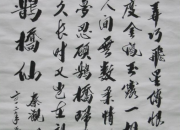 弄巧飛星傳恨
度金風玉露一相
間無數柔情
夢忍顧鵲橋歸
久長時又豈在
鵲橋仙
秦觀